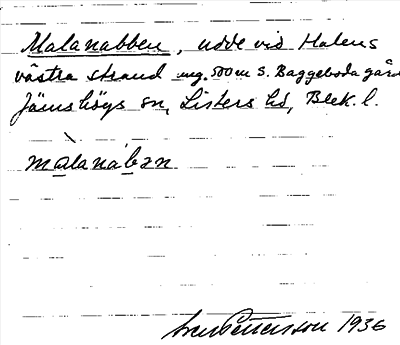 Malanabben, udde vid Halens
västra strand ung. 500 m S. Baggeboda gård
Jämshögs sn, Listers hd, Blek. l.
màlanábən
Pettersson 1936